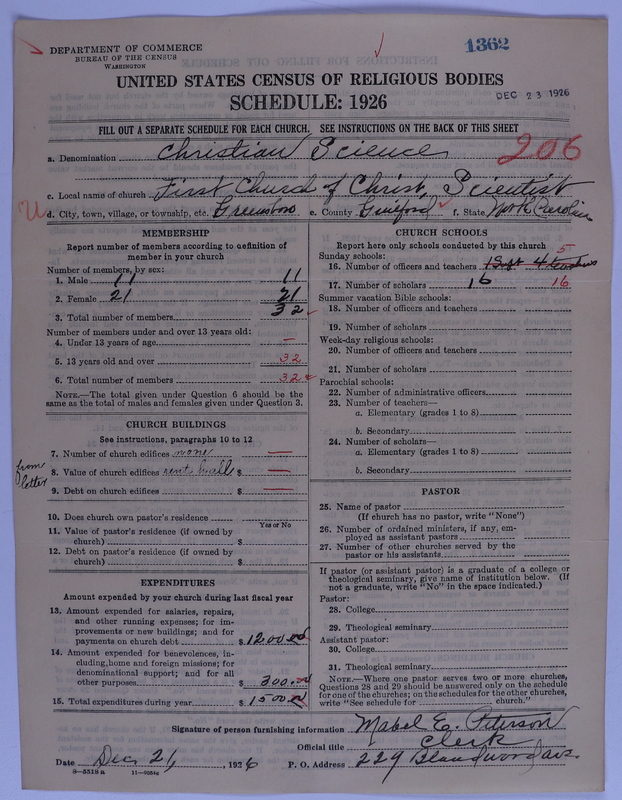 DEPARTMENT OF COMMERCE
BUREAU OF THE CENSUS
WASHINGTON
1362
UNITED STATES CENSUS OF RELIGIOUS BODIES
SCHEDULE: 1926
DEC 23 1926
FILL OUT A SEPARATE SCHEDULE FOR EACH CHURCH. SEE INSTRUCTIONS ON THE BACK OF THIS SHEET
a. Denomination Christian Science 206
c. Local name of church First Church of Christ, Scientist
d. City, town, village, or township, etc. Greensboro e. County Guilford f. State North Carolina
MEMBERSHIP
Report number of members according to definition of
member in your church
Number of members, by sex:
1. Male 11 11
2. Female 21 21
3. Total number of members 32
Number of members under and over 13 years old:
4. Under 13 years of age —
5. 13 years old and over 32
6. Total number of members 32
NOTE.—The total given under Question 6 should be
same as the total of males and females given under Question 3.
CHURCH BUILDINGS
See instructions, paragraphs 10 to 12
from
letter
7. Number of church edifices none —
8. Value of church edifices rent hall $ —
9. Debt on church edifices $ —
10. Does church own pastor's residence
Yes or No
11. Value of pastor's residence (if owned by
church) $
12. Debt on pastor's residence (if owned by
church) $
EXPENDITURES
Amount expended by your church during last fiscal year
13. Amount expended for salaries, repairs,
and other running expenses; for im-
provements or new buildings; and for
payments on church debt $ 1200.00
14. Amount expended for benevolences, in-
cluding, home and foreign missions; for
denominational support; and for all
other purposes $ 300.00
15. Total expenditures during year $ 1500.00
CHURCH SCHOOLS
Report here only schools conducted by this church
Sunday schools: 5
16. Number of officers and teachers 1 Supt 4 teachers
17. Number of scholars 16 16
Summer vacation Bible schools:
18. Number of officers and teachers
19. Number of scholars
Week-day religious schools:
20. Number of officers and teachers
21. Number of scholars
Parochial schools:
22. Number of administrative officers
23. Number of teachers—
a. Elementary (grades 1 to 8)
b. Secondary
24. Number of scholars—
a. Elementary (grades 1 to 8)
b. Secondary
PASTOR
25. Name of pastor
(If church has no pastor, write "None")
26. Number of ordained ministers, if any, em-
ployed as assistant pastors
27. Number of other churches served by the
pastor or his assistants
If pastor (or assistant pastor) is a graduate of a college or
theological seminary, give name of institution below. (If
not a graduate, write "No" in the space indicated.)
Pastor:
28. College
29. Theological seminary
Assistant pastor:
30. College
31. Theological seminary
NOTE.—Where one pastor serves two or more churches,
Questions 28 and 29 should be answered only on the schedule
for one of the churches; on the schedules for the other churches,
write "See schedule for church."
Signature of person furnishing information Mabel E. Peterson
Official title Clerk
Date Dec 21, 1926 P. O. Address 229 Blandwood Ave.
8—5518 a 11—9354